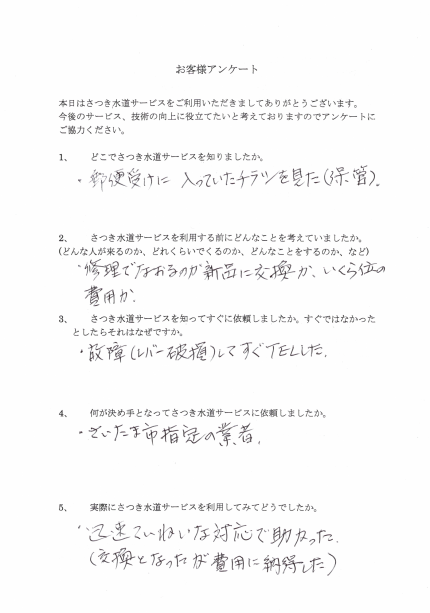 お客様アンケート
本日はさつき水道サービスをご利用いただきましてありがとうございます。
今後のサービス、技術の向上に役立てたいと考えておりますのでアンケートに
ご協力ください。
1、 どこでさつき水道サービスを知りましたか。
・郵便受けに 入っていたチラシを見た(保管)。
2、 さつき水道サービスを利用する前にどんなことを考えていましたか。
(どんな人が来るのか、どれくらいでくるのか、どんなことをするのか、など)
・修理でなおるのか新品に交換か、いくら位の
費用か、
3、 さつき水道サービスを知ってすぐに依頼しましたか。すぐではなかった
としたらそれはなぜですか。
・故障(レバー破損)してすぐTELした.
4、 何が決め手となってさつき水道サービスに依頼しましたか。
・さいたま市指定の業者.
5、 実際にさつき水道サービスを利用してみてどうでしたか。
・迅速ていねいな対応で助かった.
(交換となったが費用に納得した)